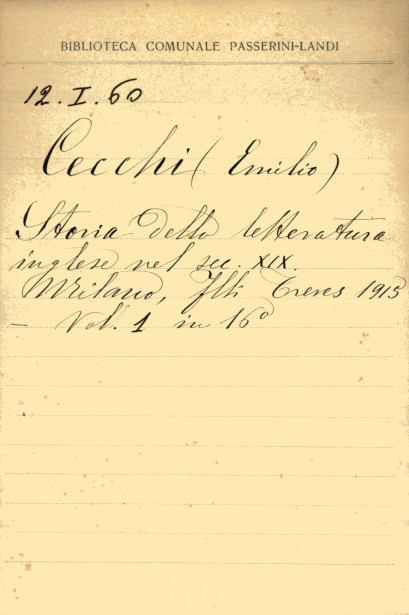 BIBLIOTECA COMUNALE PASSERINI-LANDI
12.I.60
Cecchi (Emilio)
Storia della letteratura
inglese nel sec. XIX.
Milano, Flli Treves 1915
— Vol. 1 in 16°